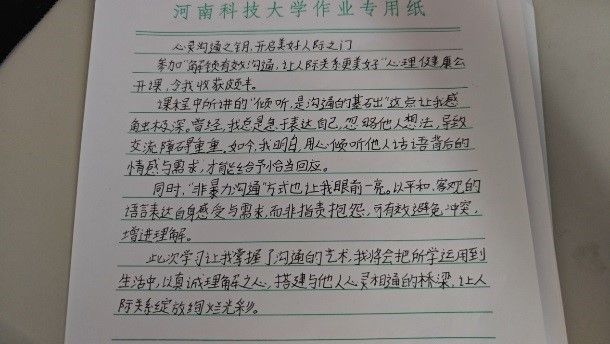 河南科技大学作业专用纸
心灵沟通之钥,开启美好人际之门
参加“解锁有效沟通,让人际关系更美好”心理健康公
开课,令我收获颇丰。
课程中所讲的“倾听,是沟通的基础”这点让我感
触极深。曾经,我总是急于表达自己,忽略他人想法,导致
交流障碍重重。如今,我明白,用心倾听他人话语背后的
情感与需求,才能给予恰当回应。
同时,“非暴力沟通”方式也让我眼前一亮。以平和、客观的
语言表达自身感受与需求,而非指责抱怨,可有效避免冲突,
增进理解。
此次学习让我掌握了沟通的艺术,我将会把所学运用到
生活中,以真诚理解之心,搭建与他人心灵相通的桥梁,让人
际关系绽放绚烂光彩。